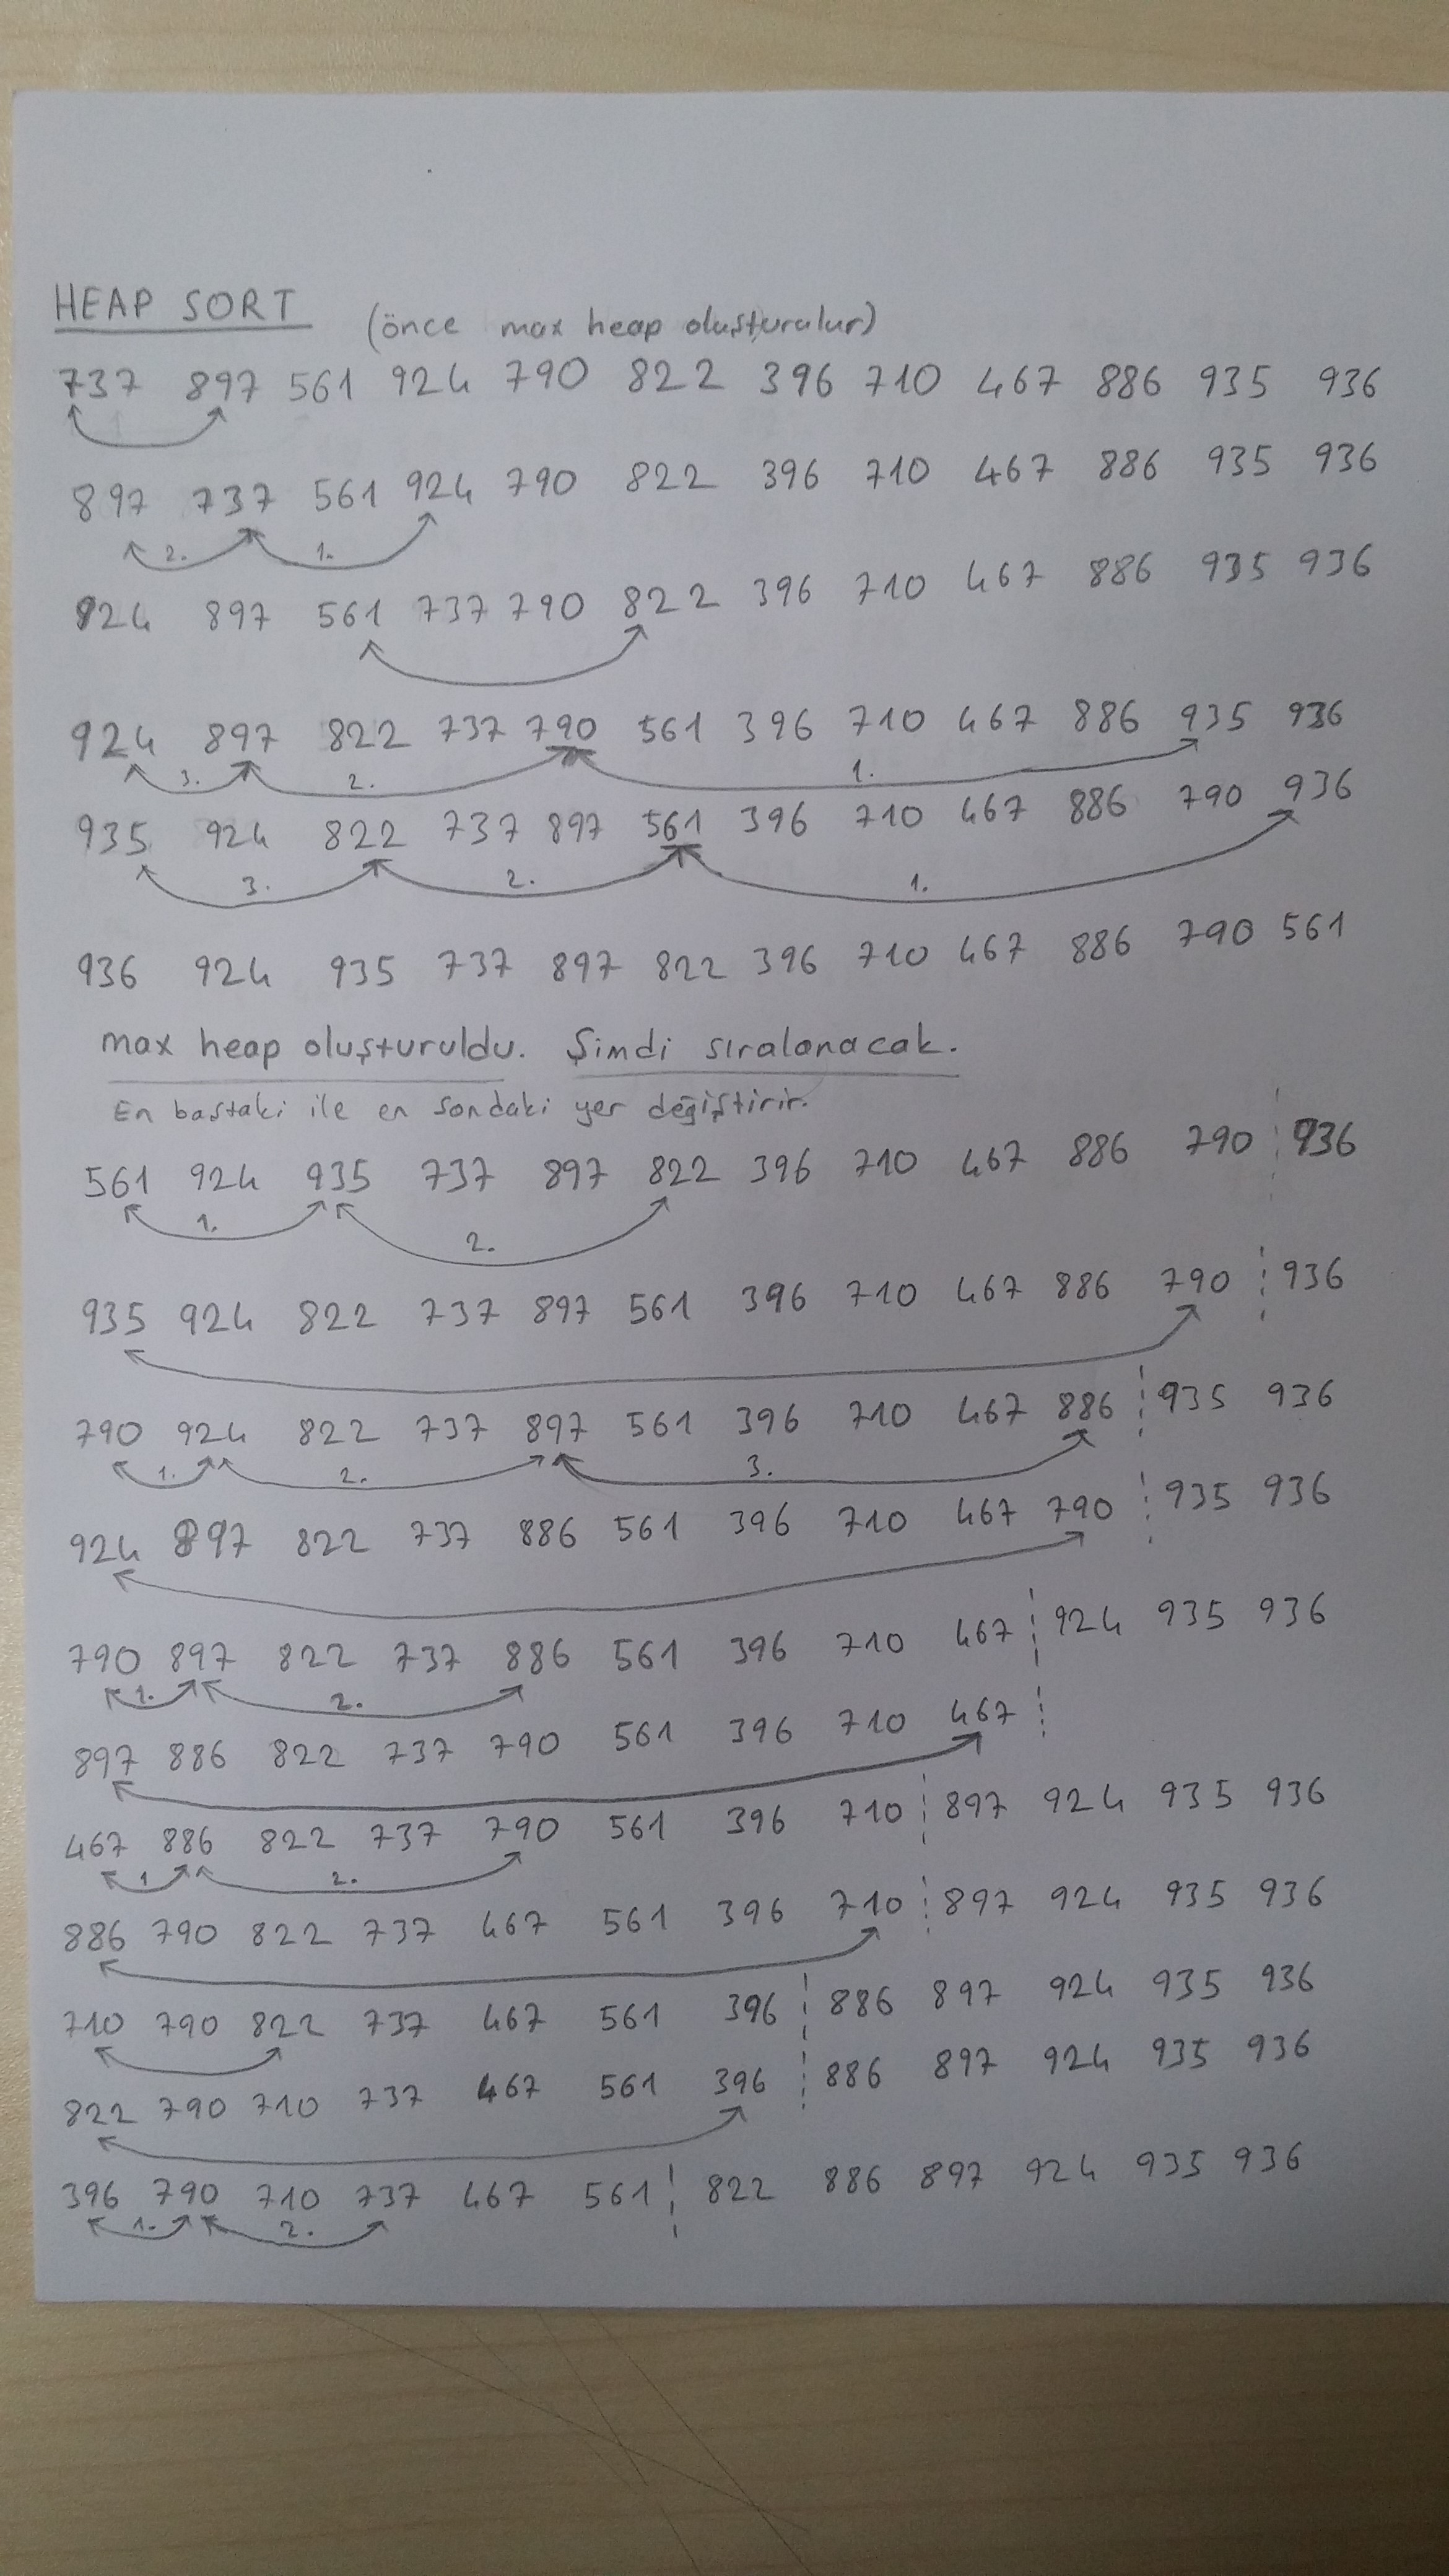 HEAP SORT (önce max heap oluşturulur)
737 897 561 924 790 822 396 710 467 886 935 936
897 737 561 924 790 822 396 710 467 886 935 936
2. 1.
924 897 561 737 790 822 396 710 467 886 935 936
924 897 822 737 790 561 396 710 467 886 935 936
3. 2. 1.
935 924 822 737 897 561 396 710 467 886 790 936
3. 2. 1.
936 924 935 737 897 822 396 710 467 886 790 561
max heap oluşturuldu. Şimdi sıralanacak.
En baştaki ile en sondaki yer değiştirir.
561 924 935 737 897 822 396 710 467 886 790 936
1. 2.
935 924 822 737 897 561 396 710 467 886 790 936
790 924 822 737 897 561 396 710 467 886 935 936
1. 2. 3.
924 897 822 737 886 561 396 710 467 790 935 936
790 897 822 737 886 561 396 710 467 924 935 936
1. 2.
897 886 822 737 790 561 396 710 467
467 886 822 737 790 561 396 710 897 924 935 936
1 2.
886 790 822 737 467 561 396 710 897 924 935 936
710 790 822 737 467 561 396 886 897 924 935 936
822 790 710 737 467 561 396 886 897 924 935 936
396 790 710 737 467 561 822 886 897 924 935 936
1. 2.